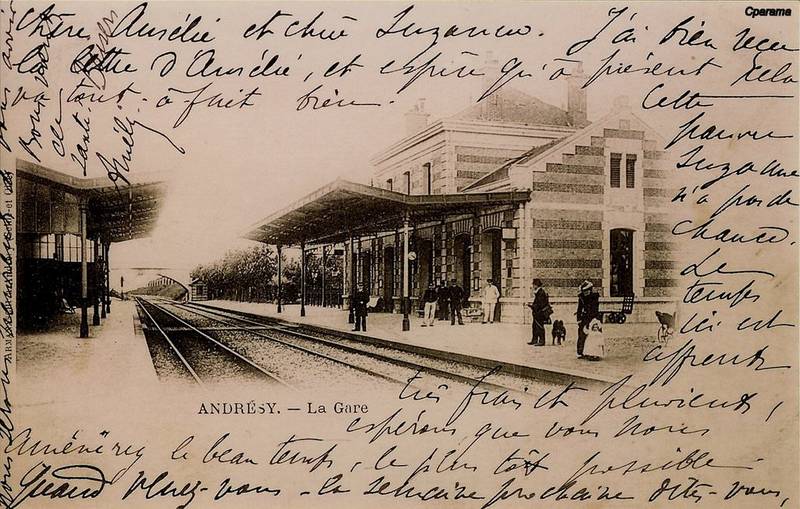 Cparama
Chère Aurélie et chère Suzanne. J'ai bien reçu
la lettre d'Aurélie, et espère qu'à présent cela
va tout-à-fait bien.
Cette
pauvre
Suzanne
n'a pas de
chance.
Le
temps
ici est
affreux
très frais et pluvieux,
espérons que vous nous
amènerez le beau temps, le plus tôt possible.
Quand venez-vous - la semaine prochaine dites-vous,
nous serons
vous voir
Bons baisers
de
tante
Amély
ANDRÉSY. — La Gare